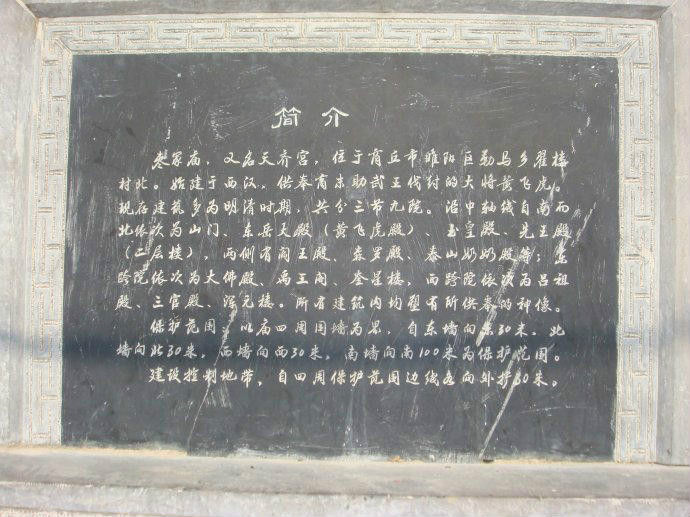 简介
老家庙，又名天齐宫，位于商丘市睢阳区勒马乡翟楼
村北。始建于西汉，供奉商末助武王伐纣的大将黄飞虎。
现存建筑多为明清时期，共分三节九院。沿中轴线自南而
北依次为山门、东岳天殿（黄飞虎殿）、玉皇殿、先王殿
（二层楼），两侧有阎王殿、森罗殿、泰山奶奶殿等；东
跨院依次为大佛殿、禹王阁、奎星楼，西跨院依次为吕祖
殿、三官殿、混元楼。所有建筑内均塑有所供奉的神像。
保护范围：以庙四周围墙为界，自东墙向东30米，北
墙向北30米，西墙向西30米，南墙向南100米为保护范围。
建设控制地带，自四周保护范围边线各向外扩30米。